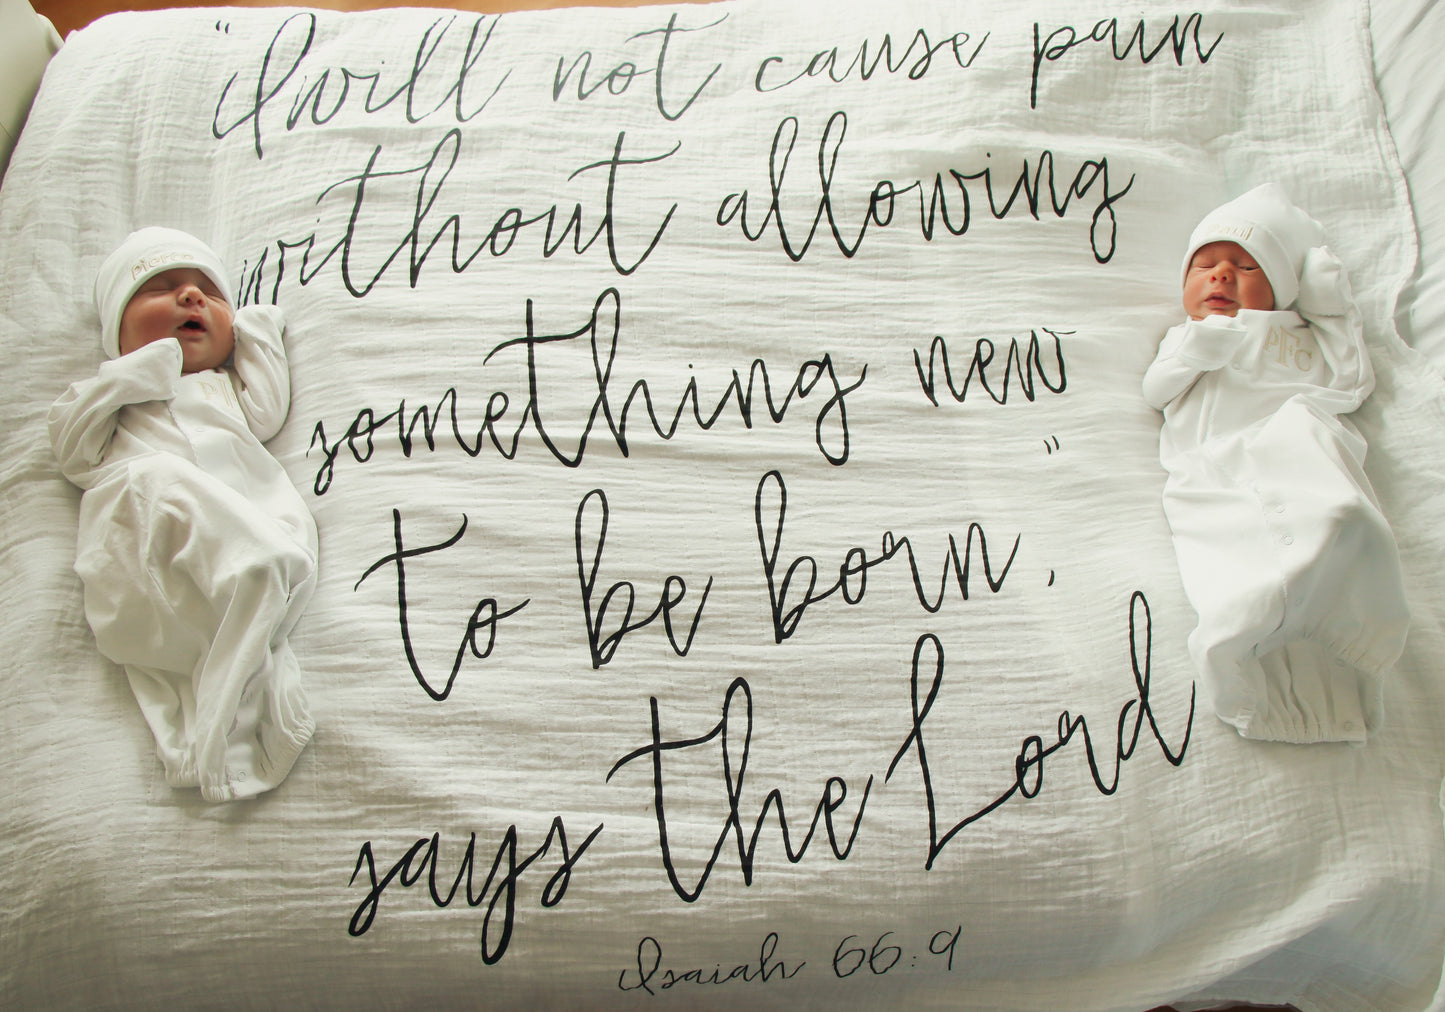 "I will not cause pain
without allowing
something new
to be born,"
says the Lord
Isaiah 66:9
Pierce
Paul
PFC